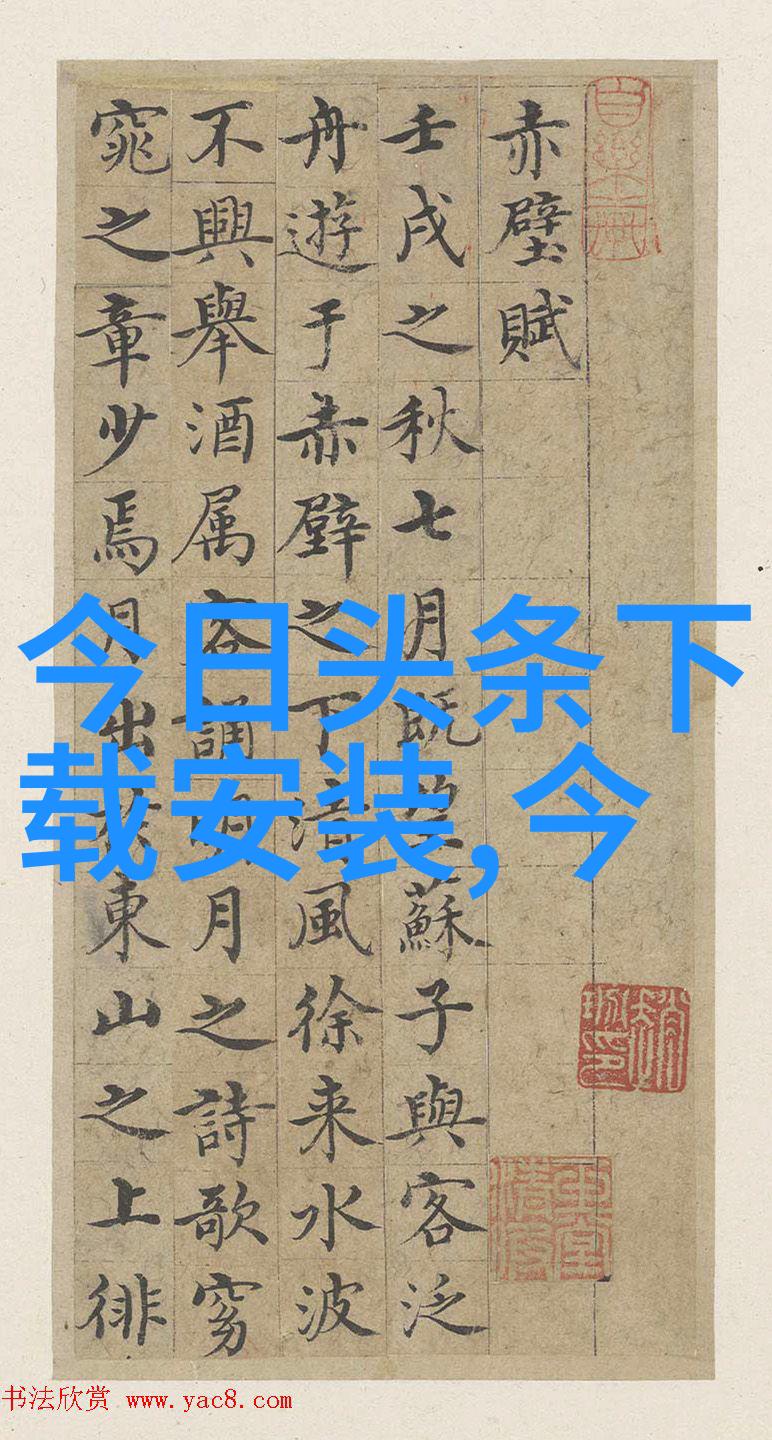 赤壁賦
壬戌之秋七月既望蘇子與客泛
舟遊于赤壁之下清風徐来水波
不興舉酒属客誦明月之詩歌窈
窕之章少焉月出於東山之上徘
今日头条下
载安装,今
书法欣赏 www.yac8.com